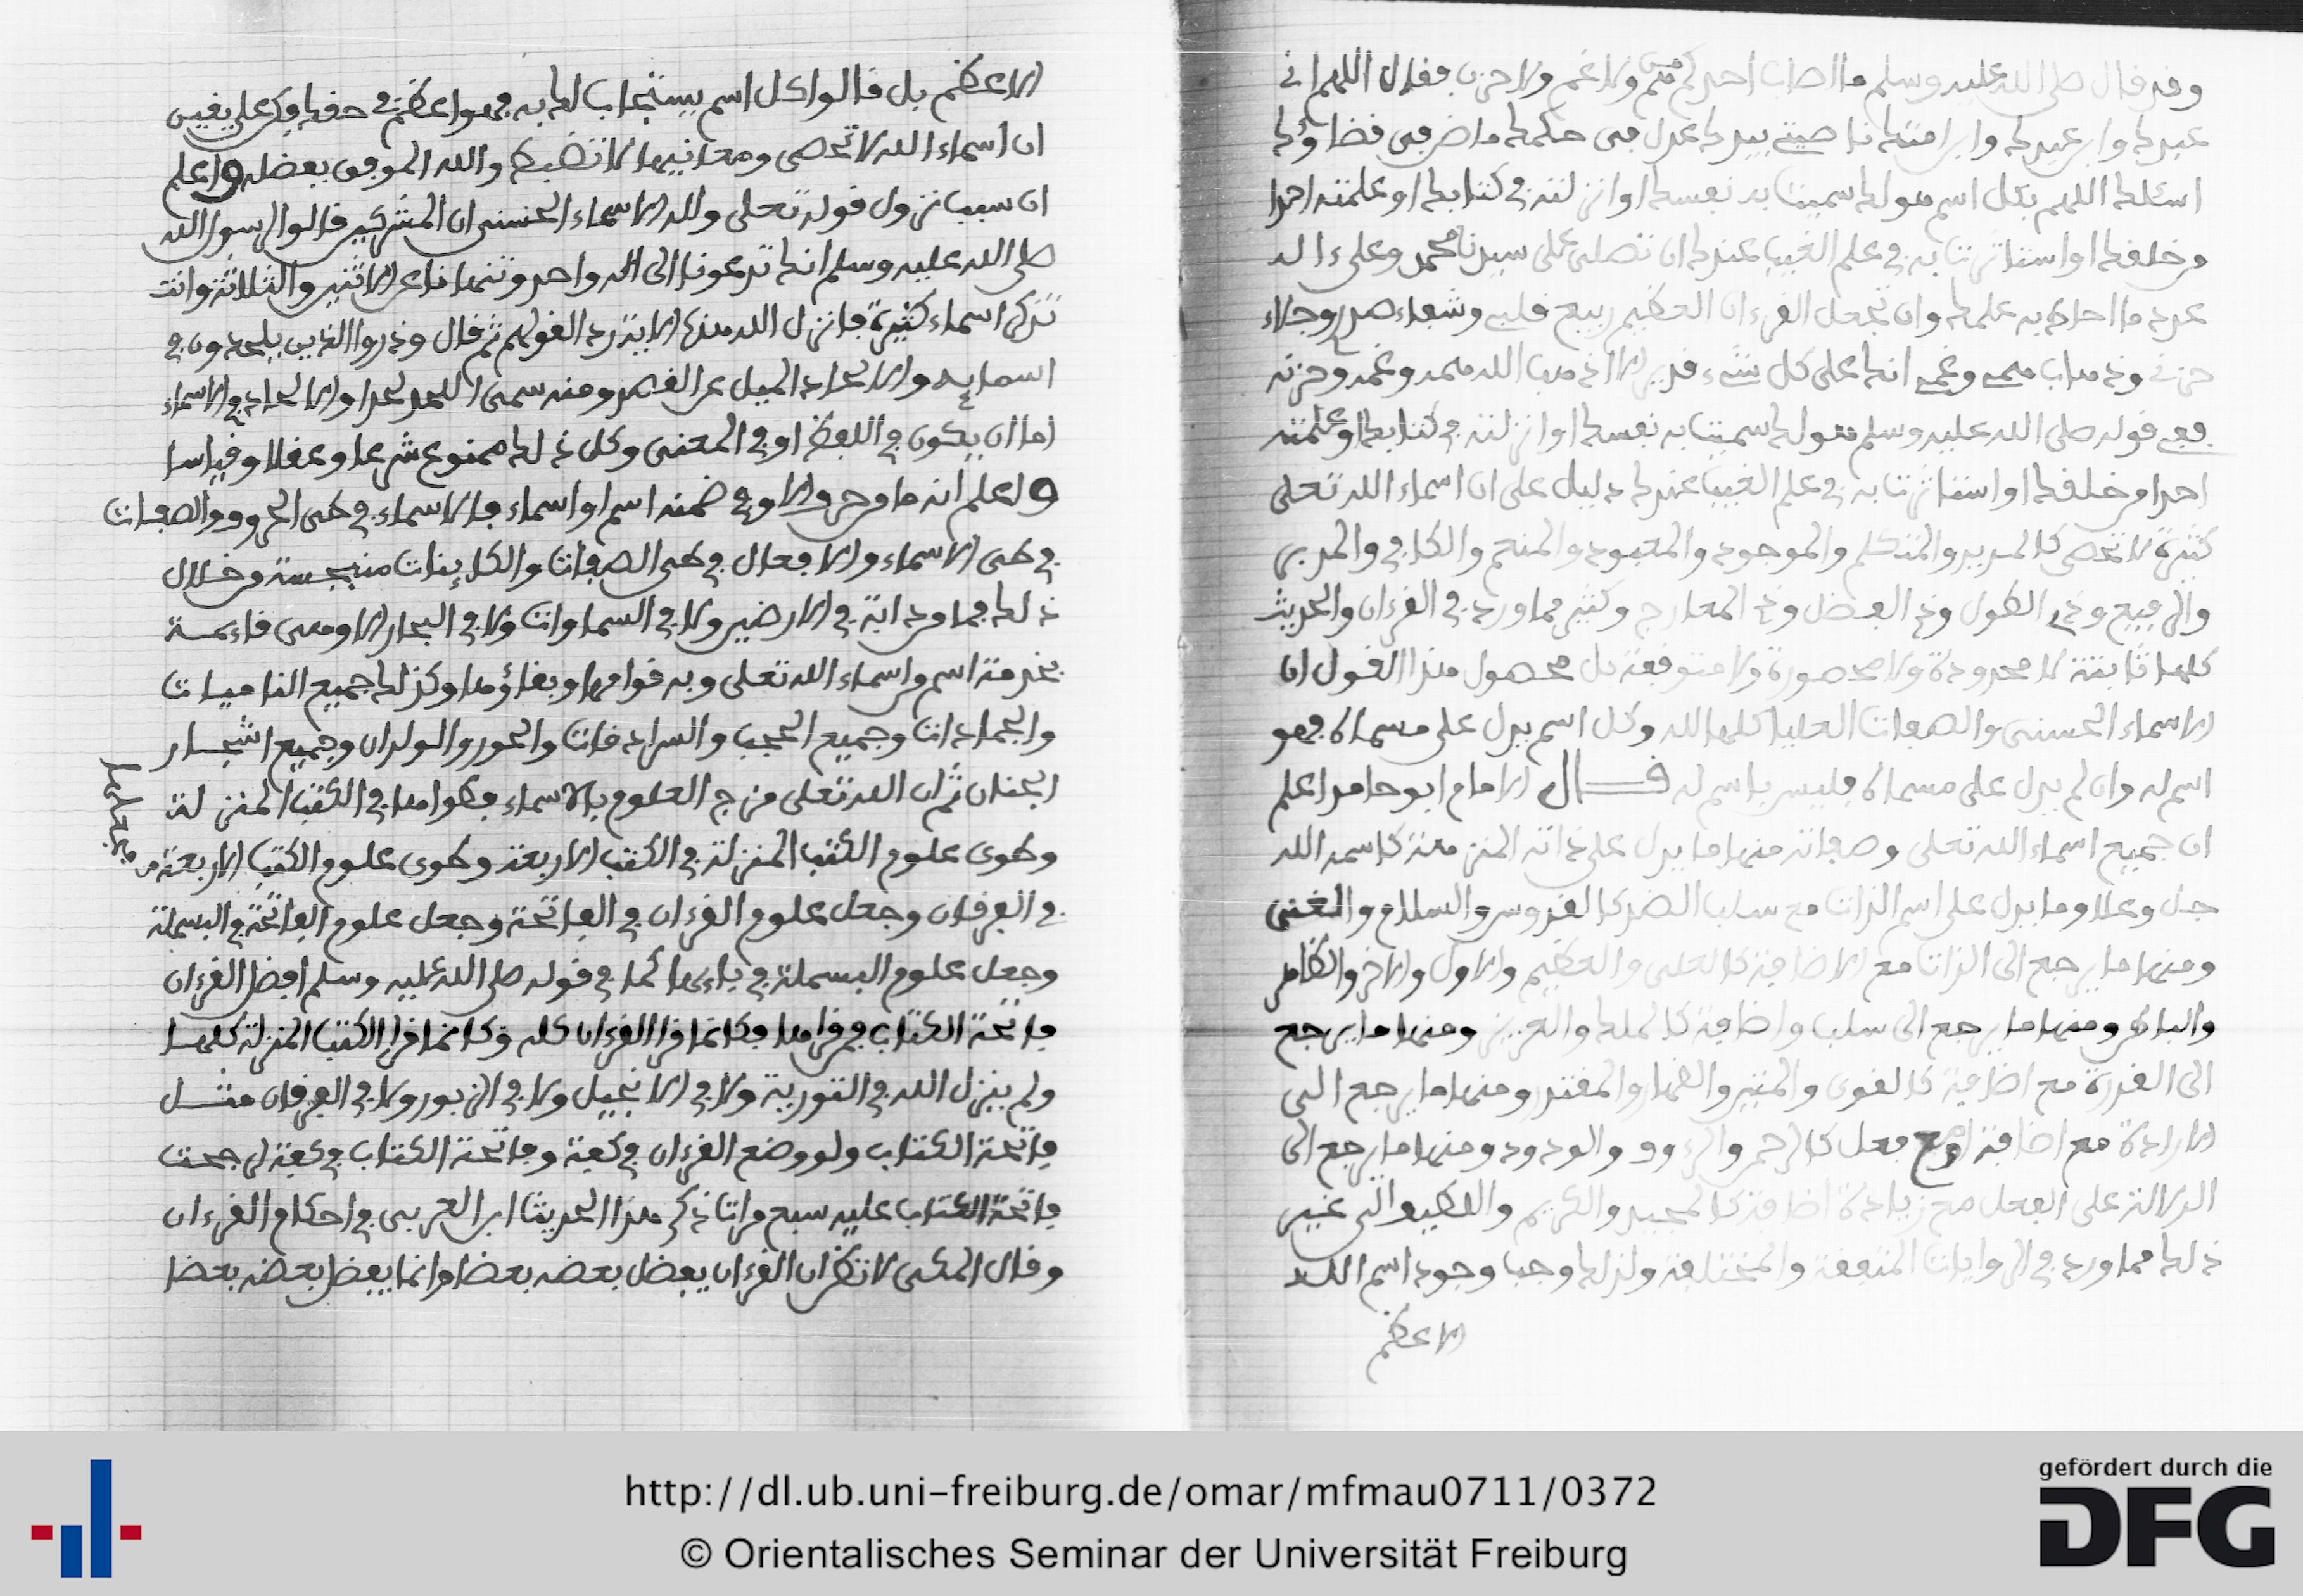 وقد قال صلى الله عليه وسلم ما اصاب احدكم هم ولا غم ولا حزن فقال اللهم اني
عبدك وابن عبدك وابن امتك ناصيتي بيدك عدل في حكمك ماض في قضاؤك
اسئلك اللهم بكل اسم هو لك سميت به نفسك او انزلته في كتابك او علمته احدا
من خلقك او استاثرت به في علم الغيب عندك ان تصلي على سيدنا محمد وعلى ءاله
عدد ما احاط به علمك وان تجعل القرءان العظيم ربيع قلبي وشفاء صدري وجلاء
حزني وذهاب همي وغمي انك على كل شيء قدير الا اذهب الله همه وغمه وحزنه
ففي قوله صلى الله عليه وسلم هو لك سميت به نفسك او انزلته في كتابك او علمته
احدا من خلقك او استاثرت به في علم الغيب عندك دليل على ان اسماء الله تعلى
كثيرة لا تحصى كالمريد والمتكلم والموجود والمعبود والمنعم والكافي والمدبر
والرفيع وذي الطول وذي الفضل وذي المعارج وكثير مما ورد في القرءان والحديث
كلها ثابتة لا محدودة ولا محصورة ولا متوقفة بل محصول هذا القول ان
الاسماء الحسنى والصفات العليا كلها لله وكل اسم يدل على مسماه فهو
اسم له وان لم يدل على مسماه فليس باسم له قال الامام ابو حامد اعلم
ان جميع اسماء الله تعلى وصفاته منها ما يدل على ذاته المنزهة كاسمه الله
جل وعلا وما يدل على اسم الذات مع سلب الضد كالقدوس والسلام والغنى
ومنها ما يرجع الى الذات مع الاضافة كالعلى والعظيم والاول والاخر والظاهر
والباطن ومنها ما يرجع الى سلب واضافة كالملك والعزيز ومنها ما يرجع
الى القدرة مع اضافة كالقوى والمتين والقهار والمقتدر ومنها ما يرجع الى
الارادة مع اضافة او مع فعل كالرحمن والرءوف والودود ومنها ما يرجع الى
الدلالة على الفعل مع زيادة اضافة كالمجيد والكريم واللطيف الى غير
ذلك مما ورد في الروايات المتفقة والمختلفة ولذلك وجب وجود اسم الله
الاعظم
الاعظم بل قالوا كل اسم يستجاب لك به فهو اعظم في حقك فكن على يقين
ان اسماء الله لا تحصى ومعانيها لا تضبط والله الموفق بفضله واعلم
ان سبب نزول قوله تعلى ولله الاسماء الحسنى ان المشركين قالوا لرسول الله
صلى الله عليه وسلم انك تدعونا الى اله واحد وتنهانا عن الاثنين والثلاثة وانت
تذكر اسماء كثيرة فانزل الله هذه الاية ردا لقولهم ثم قال وذروا الذين يلحدون في
اسمايه والالحاد الميل عن القصد ومنه سمى اللحد لحدا والالحاد في الاسماء
اما ان يكون في اللفظ او في المعنى وكل ذلك ممنوع شرعا وعقلا وقياسا
واعلم انه ما من حرف الا وفي ضمنه اسم او اسماء فالاسماء في طى الحروف والصفات
في طى الاسماء والافعال في طى الصفات والكاينات منبجسة من خلال
ذلك فما من دابة في الارضين ولا في السماوات ولا في البحار الا وهى قائمة
بخدمة اسم من اسماء الله تعلى وبه قوامها وبقاؤها وكذلك جميع الناميات
والجمادات وجميع الحجب والسرادقات والحور والولدان وجميع اشجار
الجنان ثم ان الله تعلى مزج العلوم بالاسماء فطواها في الكتب المنزلة
وطوى علوم الكتب المنزلة في الكتب الاربعة وطوى علوم الكتب الاربعة
في الفرقان وجعل علوم القرءان في الفاتحة وجعل علوم الفاتحة في البسملة
وجعل علوم البسملة في باءها كما في قوله صلى الله عليه وسلم افضل القرءان
فاتحة الكتاب فمن قراها فكانما قرا القرءان كله وكانما قرا الكتب المنزلة كلها
ولم ينزل الله في التورية ولا في الانجيل ولا في الزبور ولا في الفرقان مثل
فاتحة الكتاب ولو وضع القرءان في كفة وفاتحة الكتاب في كفة لرجحت
فاتحة الكتاب عليه سبع مرات ذكر هذا الحديث ابن العربى في احكام القرءان
وقال المكى لا تظن ان القرءان يفضل بعضه بعضا وانما يفضل بعضه بعضا
http://dl.ub.uni-freiburg.de/omar/mfmau0711/0372
© Orientalisches Seminar der Universität Freiburg
gefördert durch die
DFG